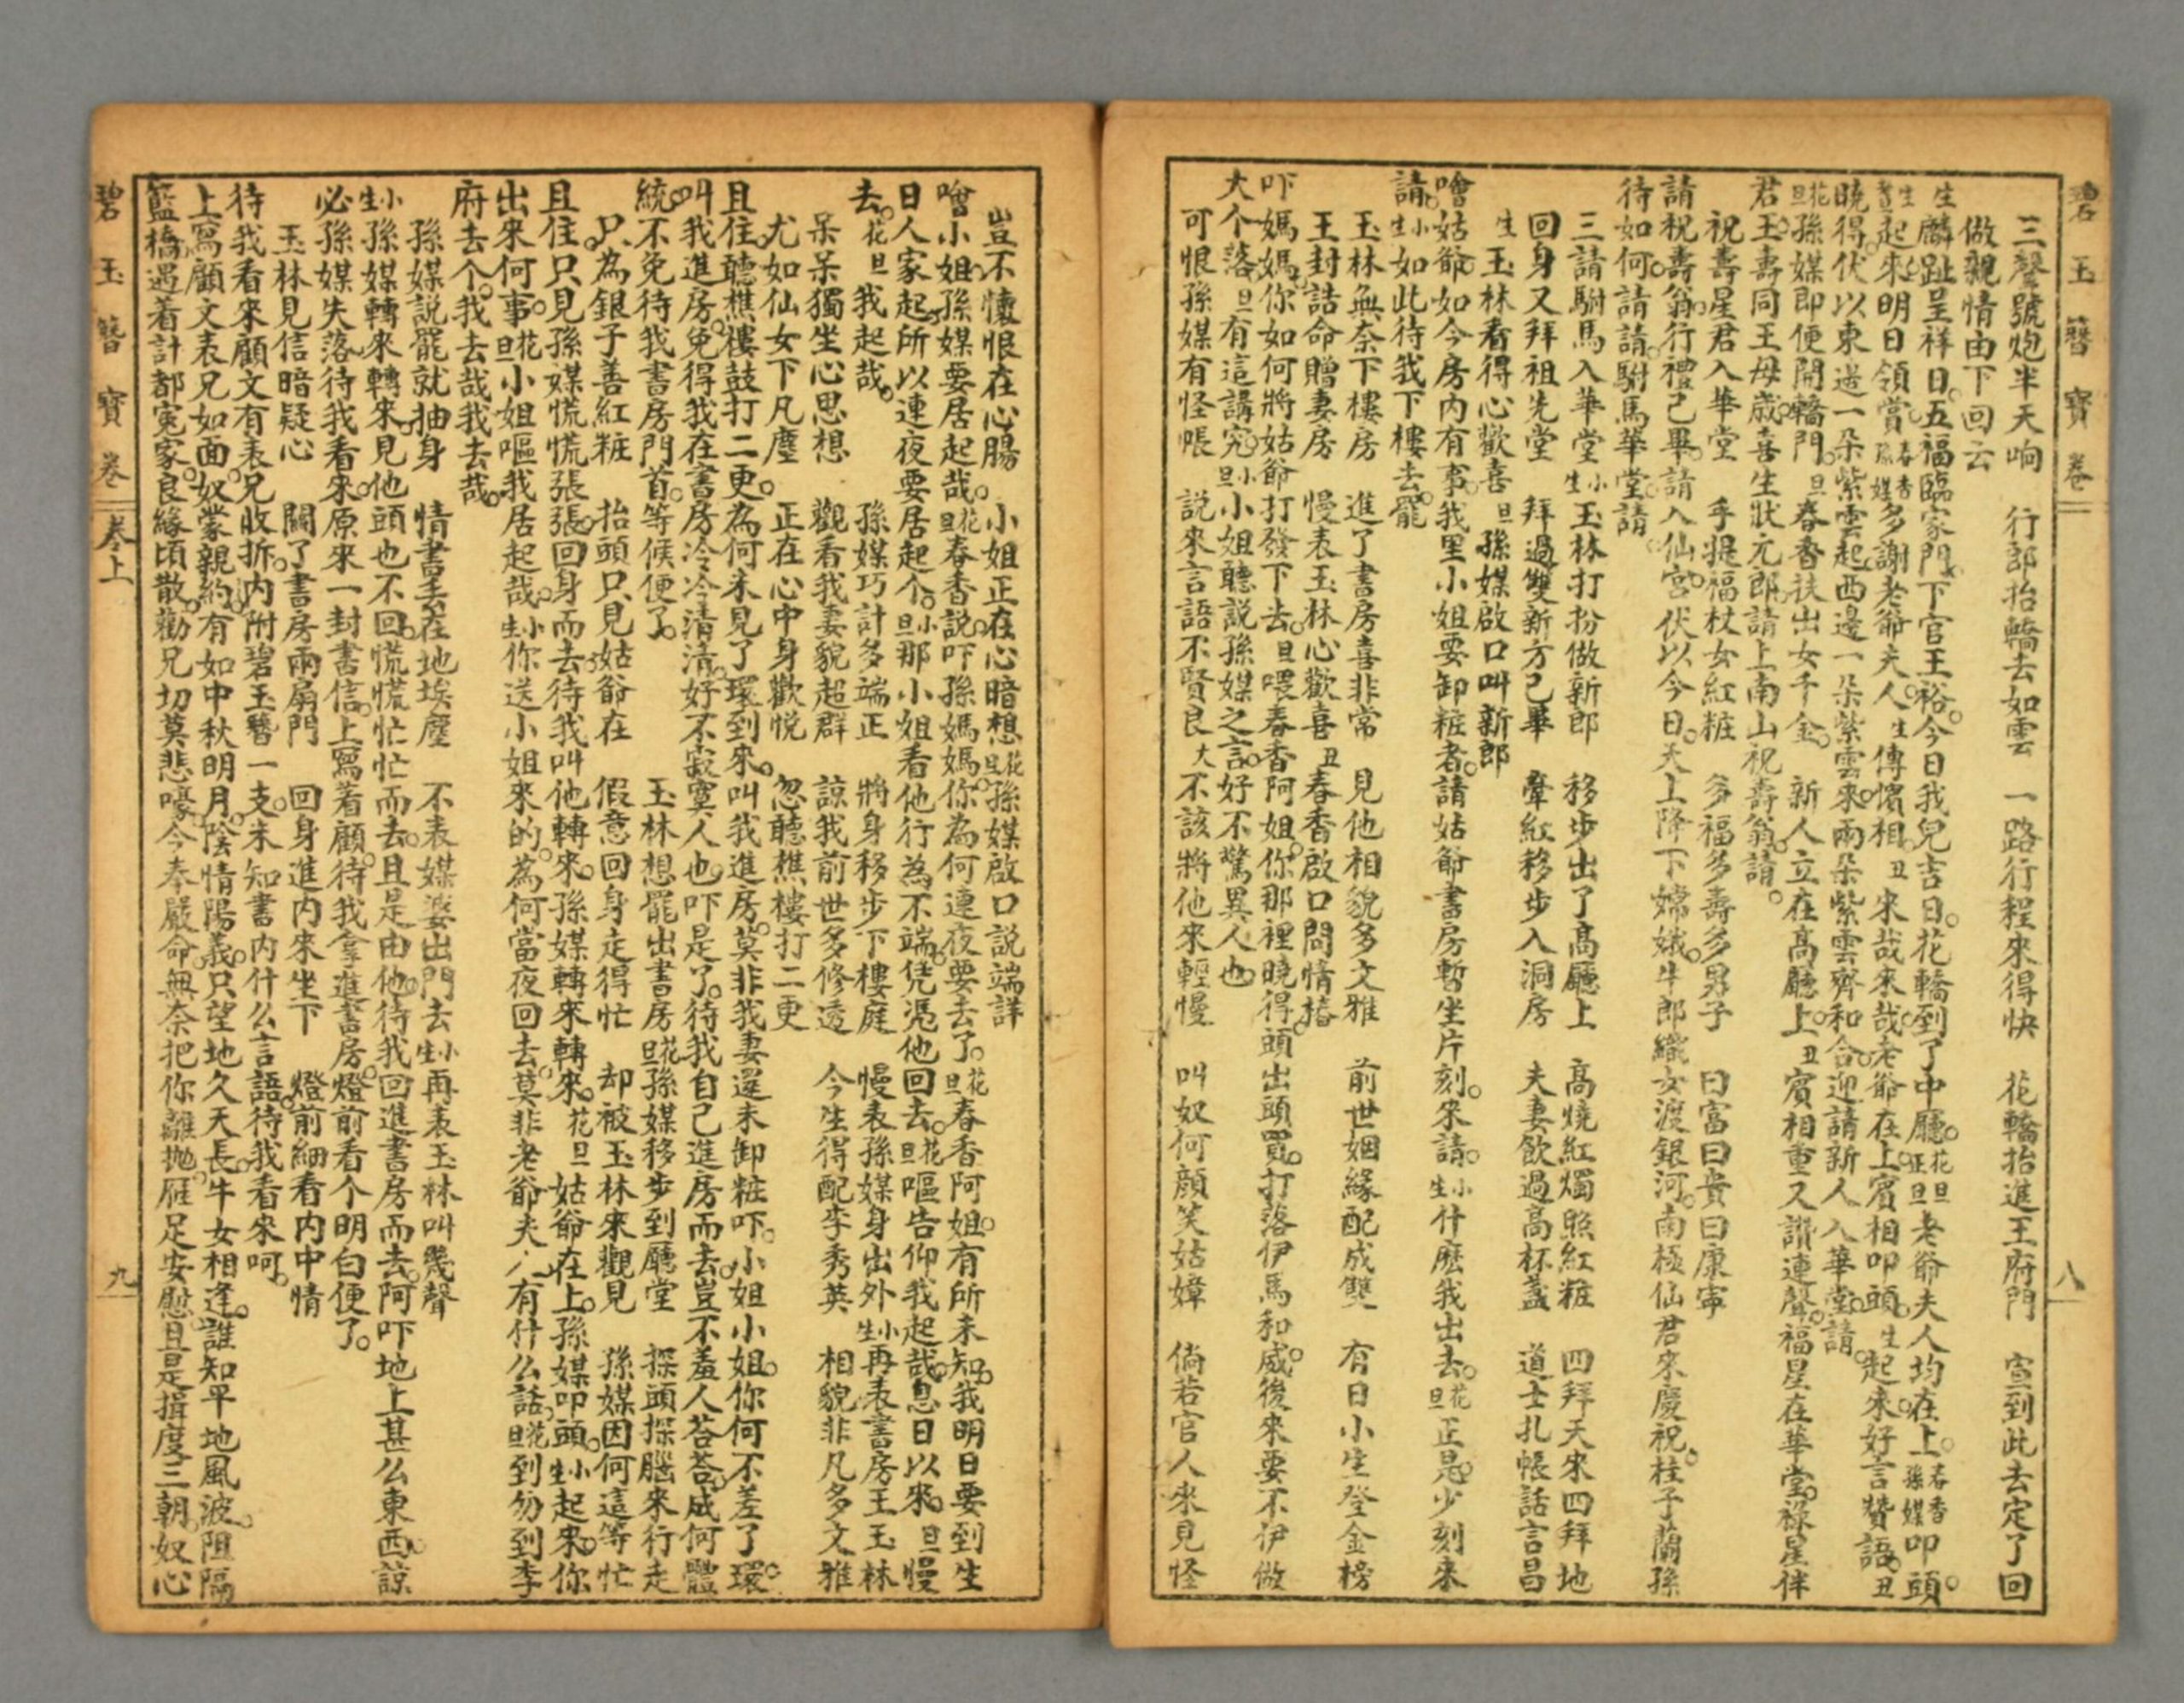 碧玉簪寶卷
八
三聲號炮半天响　行郎抬轎去如雲　一路行程來得快　花轎抬進王府門　宣到此去定了回
做親情由下回云
生麟趾呈祥日。五福臨家門。下官王裕。今日我兒吉日。花轎到了中廳。花旦正旦老爺夫人均在上。春香孫媒叩頭。
生起來明日領賞。春香孫媒多謝老爺夫人。生傳儐相。丑來哉來哉。老爺在上。賓相叩頭。生起來。好言贊語。丑
曉得。伏以東边一朵紫雲起西邊一朵紫雲來。兩朵紫雲齊和合。迎請新人入華堂。請。
花旦孫媒即便開轎門。旦春香扶出女千金。新人立在高廳上。丑賓相重又讚連聲。福星在華堂。祿星伴
君王壽同王母歲。喜生狀元郎。請上南山祝壽翁。請。
祝壽星君入華堂　手提福杖女紅粧　多福多壽多男子　曰富曰貴曰康寧
請祝壽翁。行禮己畢。請入仙宮。伏以今日。天上降下嫦娥。牛郎織女渡銀河。南極仙君來慶祝。桂子蘭孫
待如何。請請請。駙馬華堂。請。
三請駙馬入華堂　小生玉林打扮做新郎　移步出了高廳上　高燒紅燭照紅粧　四拜天來四拜地
回身又拜祖先堂　拜過雙新方己畢　牽紅移步入洞房　夫妻飲過高杯盞　道士扎帳話言昌
生玉林看得心歡喜　旦孫媒啟口叫新郎
噲姑爺。如今房內有事。我里小姐要卸粧者。請姑爺書房暫坐片刻。來請。小生什麽我出去。花旦正是。少刻來
請。小生如此待我下樓去罷
玉林無奈下樓房　進了書房喜非常　見他相貌多文雅　前世姻緣配成雙　有日小生登金榜
王封誥命贈妻房　慢表玉林心歡喜　丑春香啟口問情樁
吓媽媽。你如何將姑爺打發下去。旦喂春香阿姐。你那裡曉得。頭出頭買。打落伊馬和威。後來要不伊做
大个落。旦有這講究。小旦小姐聽說孫媒之言。好不驚異人也
可恨孫媒有怪帳　說來言語不賢良　大不該將他來輕慢　叫奴何顔笑姑嫜　倘若官人來見怪
豈不懷恨在心腸。小姐正在心暗想　花旦孫媒啟口說端詳
噲小姐。孫媒要居起哉。花旦春香說吓孫媽媽。你為何連夜要去了。花旦春香阿姐。有所未知。我明日要到生
日人家起。所以連夜要居起个。小旦那小姐看他行為不端。凭憑他回去。花旦嘔告仰我起哉。息日以來。旦慢
去。花旦我起哉。
呆呆獨坐心思想　觀看我妻貌超群　諒我前世多修透　今生得配李秀英　相貌非凡多文雅
尤如仙女下凡塵　正在心中身歡悦　忽聽樵樓打二更
且住。聽樵樓鼓打二更。為何未見了環到來。叫我進房。莫非我妻還未卸粧吓。小姐小姐。你何不差了環。
叫我進房。免得我在書房冷冷清清。好不寂寞人也。吓是了。待我自己進房而去。豈不羞人荅荅。成何體
統。不免待我書房門首。等候便了。
玉林想罷出書房　花旦孫媒移步到廳堂　探頭探腦來行走
只為銀子善紅粧　抬頭只見姑爺在　假意回身走得忙　却被玉林來觀見　孫媒因何這等忙
且住。只見孫媒慌慌張張。回身而去。待我叫他轉來。孫媒轉來轉來。花旦姑爺在上。孫媒叩頭。小生起來。你
出來何事。花旦小姐嘔我居起哉。小生你送小姐來的。為何當夜回去。莫非老爺夫人有什么話。花旦到勿到李
府去个。我去哉我去哉。
孫媒說罷就抽身　情書丟在地埃塵　不表媒婆出門去　小生再表玉林叫幾聲
小生孫媒轉來轉來。見他頭也不回。慌慌忙忙而去。且是由他。待我回進書房而去。阿吓地上甚么東西。諒
必孫媒失落。待我看來。原來一封書信。上寫着顧。待我拿進書房。燈前看个明白便了。
玉林見信暗疑心　關了書房兩扇門　回身進內來坐下　燈前細看內中情
待我看來。顧文有表兄收拆。內附碧玉簪一支。未知書內什么言語。待我看來呵。
上寫顧文表兄如面。奴蒙親約。有如中秋明月。陰情陽義。只望地久天長。牛女相逢。誰知平地風波。阻隔
籃橋。遇着計都寃家。良緣頃散。勸兄切莫悲嚎。今奉嚴命。無奈把你離抛。雁足安慰。且是揖度三朝。奴心
碧玉簪寶卷
卷上
九